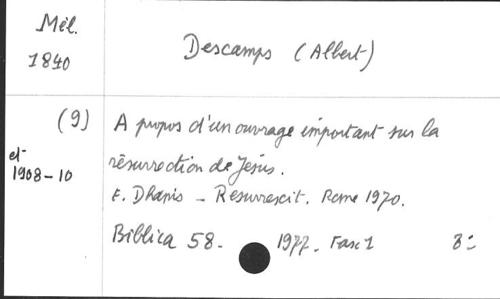 Mél.
1840
Descamps (Albert)
(9)
et
1908-10
A propos d'un ouvrage important sur la
résurrection de Jésus.
E. Dhanis - Resurrexit. Rome 1970.
Biblica 58. - 1977. Fasc 1